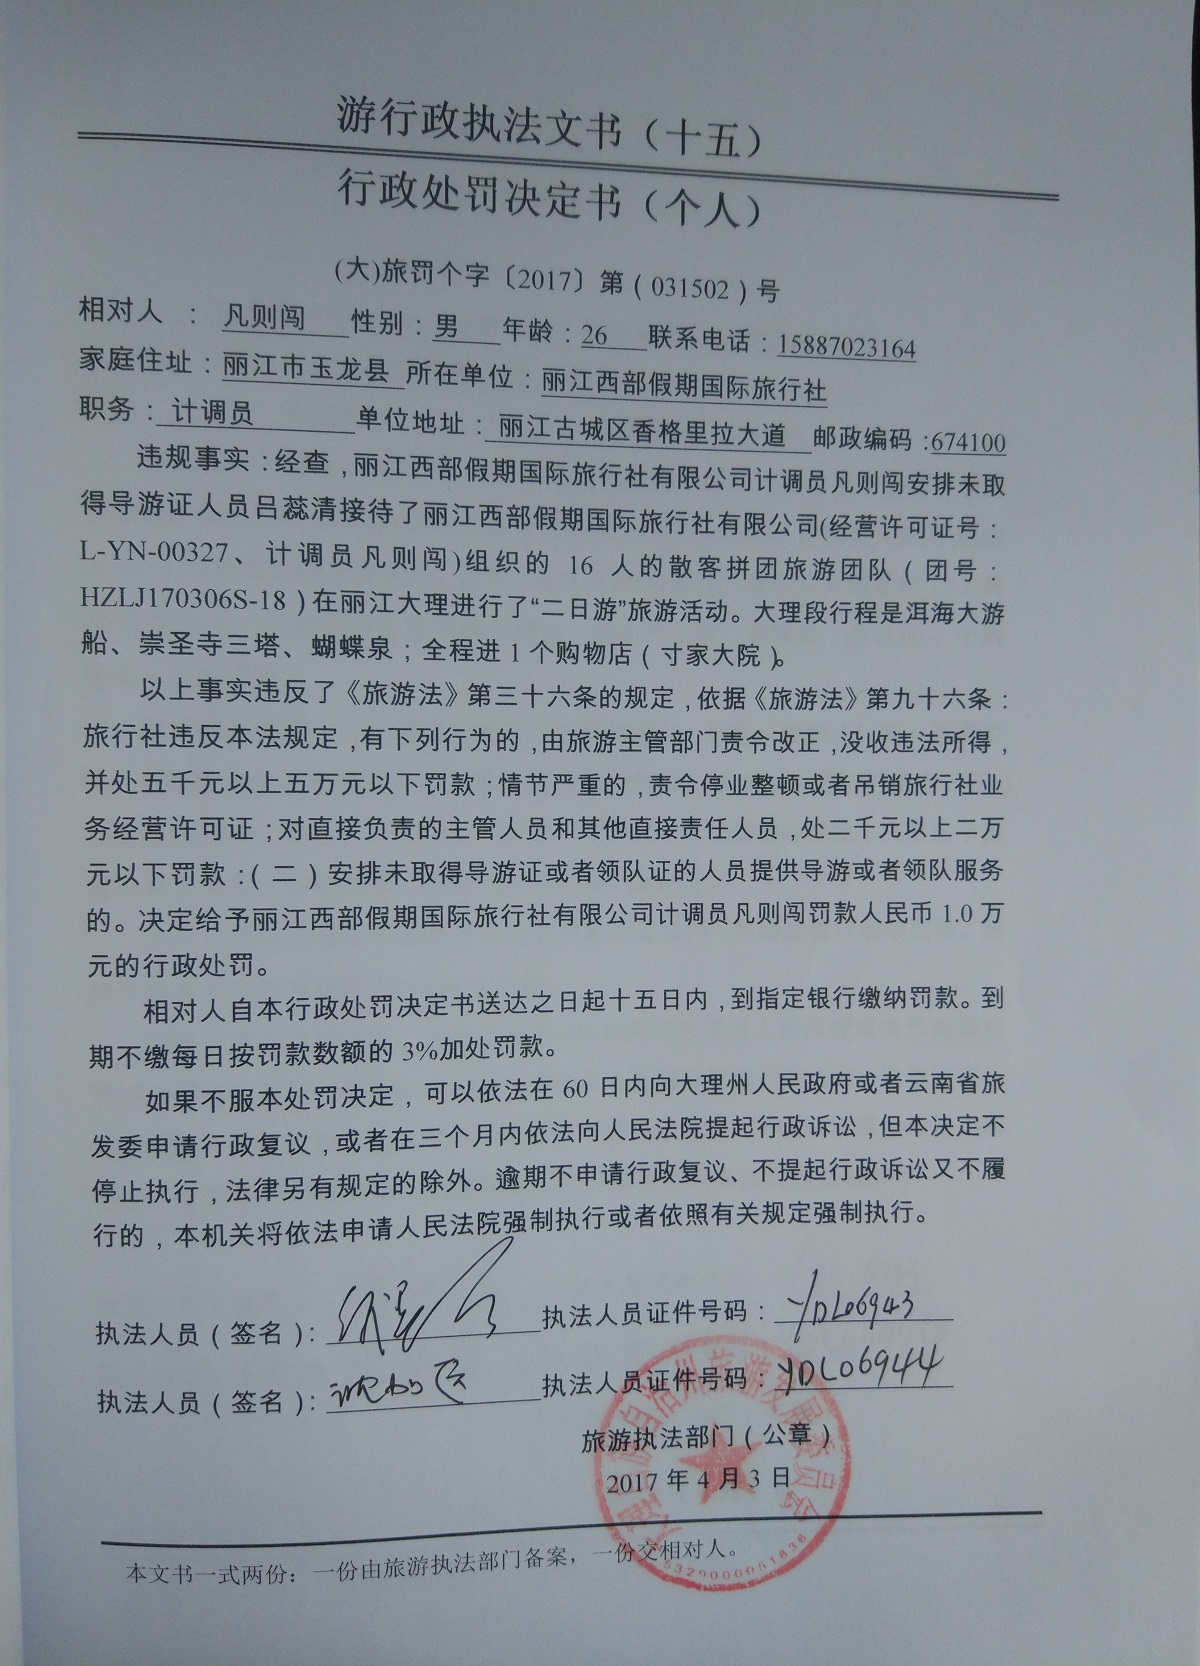 游行政执法文书（十五）
行政处罚决定书（个人）
(大)旅罚个字〔2017〕第（031502）号
相对人 ： 凡则闯 性别：男 年龄：26 联系电话：15887023164
家庭住址：丽江市玉龙县 所在单位：丽江西部假期国际旅行社
职务：计调员 单位地址：丽江古城区香格里拉大道 邮政编码：674100
违规事实：经查，丽江西部假期国际旅行社有限公司计调员凡则闯安排未取
得导游证人员吕蕊清接待了丽江西部假期国际旅行社有限公司(经营许可证号：
L-YN-00327、计调员凡则闯)组织的 16 人的散客拼团旅游团队（团号：
HZLJ170306S-18）在丽江大理进行了“二日游”旅游活动。大理段行程是洱海大游
船、崇圣寺三塔、蝴蝶泉；全程进 1 个购物店（寸家大院）。
以上事实违反了《旅游法》第三十六条的规定，依据《旅游法》第九十六条：
旅行社违反本法规定，有下列行为的，由旅游主管部门责令改正，没收违法所得，
并处五千元以上五万元以下罚款；情节严重的，责令停业整顿或者吊销旅行社业
务经营许可证；对直接负责的主管人员和其他直接责任人员，处二千元以上二万
元以下罚款：（二）安排未取得导游证或者领队证的人员提供导游或者领队服务
的。决定给予丽江西部假期国际旅行社有限公司计调员凡则闯罚款人民币 1.0 万
元的行政处罚。
相对人自本行政处罚决定书送达之日起十五日内，到指定银行缴纳罚款。到
期不缴每日按罚款数额的 3%加处罚款。
如果不服本处罚决定，可以依法在 60 日内向大理州人民政府或者云南省旅
发委申请行政复议，或者在三个月内依法向人民法院提起行政诉讼，但本决定不
停止执行，法律另有规定的除外。逾期不申请行政复议、不提起行政诉讼又不履
行的，本机关将依法申请人民法院强制执行或者依照有关规定强制执行。
执法人员（签名）： 执法人员证件号码：YDL06943
执法人员（签名）： 执法人员证件号码：YDL06944
旅游执法部门（公章）
2017 年 4 月 3 日
本文书一式两份：一份由旅游执法部门备案，一份交相对人。